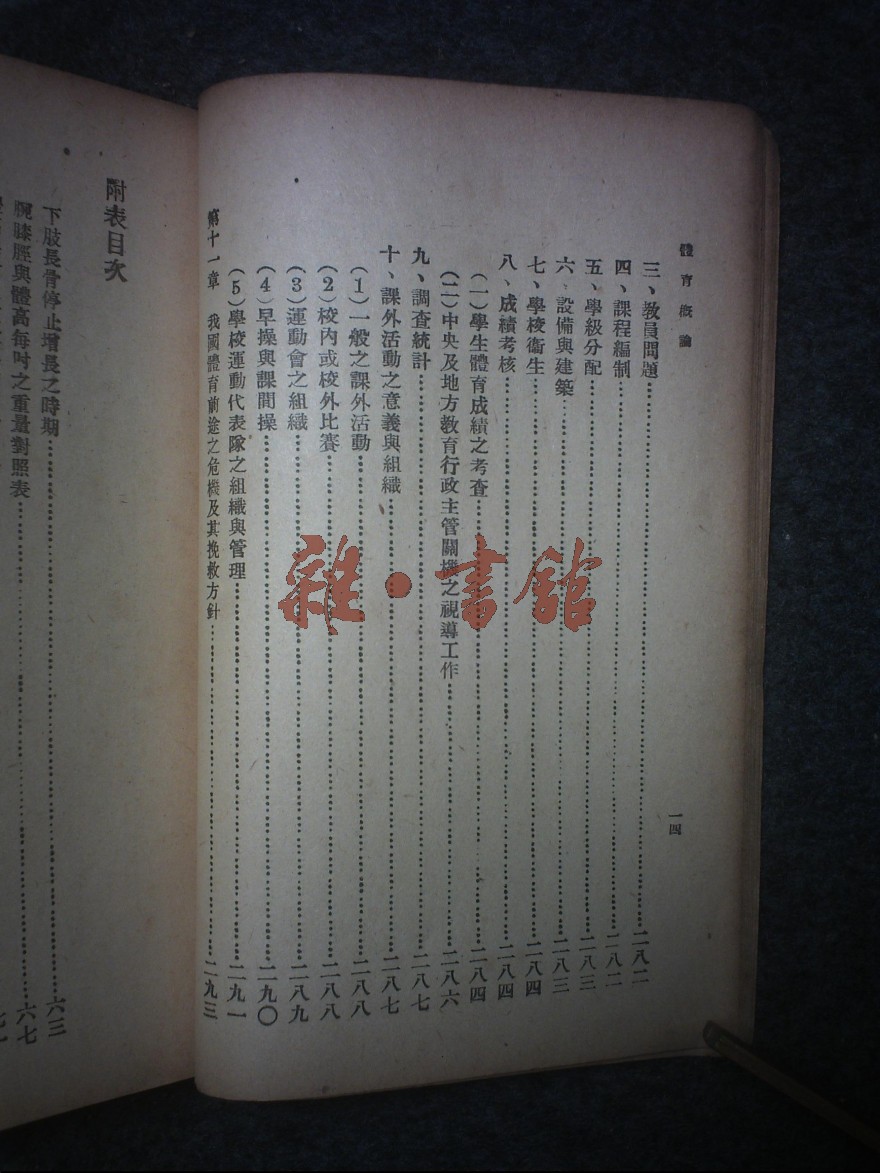 體育概論
一四
三、教員問題……二八二
四、課程編制……二八二
五、學級分配……二八三
六、設備與建築……二八三
七、學校衞生……二八四
八、成績考核……二八四
(一)學生體育成績之考查……二八四
(二)中央及地方教育行政主管關機之視導工作……二八六
九、調查統計……二八七
十、課外活動之意義與組織……二八七
(1)一般之課外活動……二八八
(2)校內或校外比賽……二八八
(3)運動會之組織……二八九
(4)早操與課間操……二九〇
(5)學校運動代表隊之組織與管理……二九一
第十一章 我國體育前途之危機及其挽救方針……二九三
附表目次
下肢長骨停止增長之時期……六三
腕膝脛與體高每吋之重量對照表……六七
雜·書館